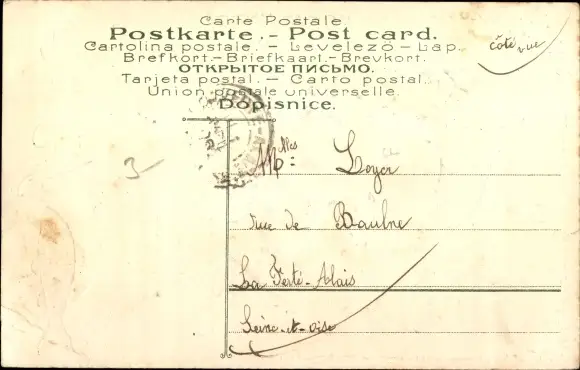 Carte Postale.
Postkarte. - Post card.
Cartolina postale. - Levelező - Lap.
Brefkort. - Briefkaart. - Brevkort.
ОТКРЫТОЕ ПИСЬМО.
Tarjeta postal. - Carto postal.
Union postale universelle.
Dopisnice.
côté vue
3-
Mlles Loyer
rue de Baulne
La Ferté-Alais
Seine-et-oise